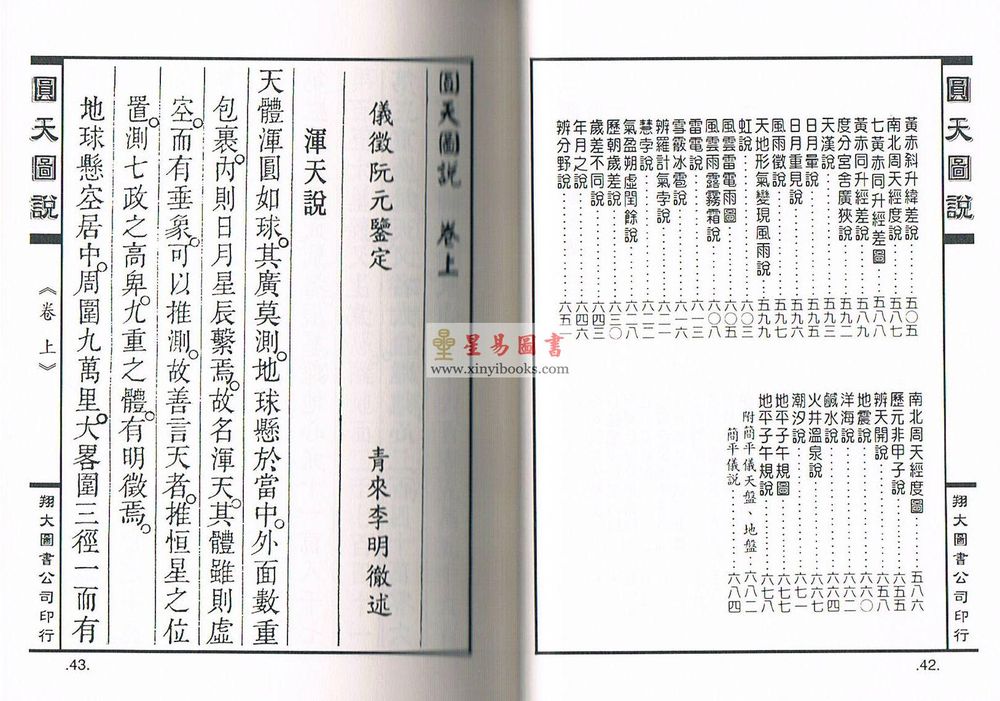 圓天圖說
黃赤斜升緯差說……五〇五
南北周天經度說……五八七
七黃赤同升經差圖……五八八
黃赤同升經差說……五八九
度分宮舍廣狹說……五九二
天漢說……五九三
日月暈說……五九五
日月重見說……五九六
風雨徵說……五九七
天地形氣變現風雨說……五九九
虹說……六〇三
風雲雷電雨圖……六〇五
風雲雨露霧霜說……六〇八
雷電說……六一三
雪霰冰雹說……六一六
辨羅計氣孛說……六二一
慧孛說……六二二
氣盈朔虛閏餘說……六二八
歷朝歲差說……六三〇
歲差不同說……六四三
年月之說……六四六
辨分野說……六五一
南北周天經度圖……五八六
歷元非甲子說……六五五
辨天開說……六五八
地震說……六六〇
洋海說……六六二
鹹水說……六六四
火井溫泉說……六六七
潮汐說……六七一
地平子午規圖……六七七
地平子午規說……六七八
附簡平儀天盤、地盤……六八二
簡平儀說……六八四
翔大圖書公司印行
.42.
圓天圖說 卷上
儀徵阮元鑒定
青來李明徹述
渾天說
天體渾圓如球。其廣莫測。地球懸於當中。外面數重
包裹。內則日月星辰繫焉。故名渾天。其體雖則虛
空。而有垂象。可以推測。故善言天者。推恒星之位
置。測七政之高卑。九重之體。有明徵焉。
地球懸空居中。周圍九萬里。大畧圍三徑一而有
圓天圖說
《卷上》
翔大圖書公司印行
.43.
星易圖書
www.xinyibooks.com